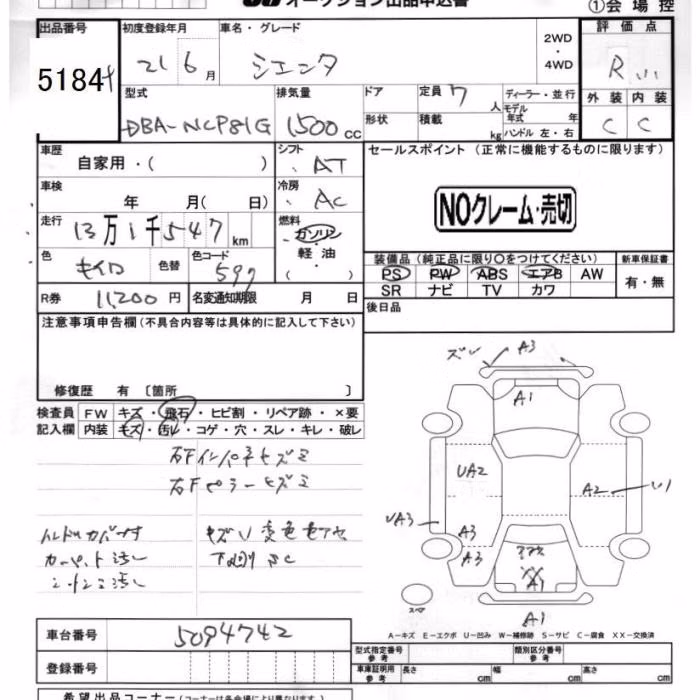 オークション出品申込書 ①会場控
出品番号 初度登録年月 車名・グレード 2WD ・ 4WD 評価点
5184 21 6月 シエンタ R
型式 排気量 ドア 定員 7 人 ディーラー・並行 外装 内装
DBA-NCP81G 1500 cc 形状 積載 kg モデル年式 年 ハンドル 左・右 C C
車歴 自家用・( ) シフト AT セールスポイント (正常に機能するものに限ります)
車検 年 月( 日) 冷房 AC
NOクレーム・売切
走行 13万1千547 km 燃料 ガソリン 軽油 ( )
色 キイロ 色替 色コード 597
装備品 (純正品に限り〇をつけてください) 新車保証書
PS PW ABS エアB AW 有・無
SR ナビ TV カワ
R券 11,200 円 名変通知期限 月 日 後日品
注意事項申告欄 (不具合内容等は具体的に記入して下さい)
修復歴 有 〔箇所 〕
検査員 FW キズ・飛石・ヒビ割・リペア跡・×要
記入欄 内装 キズ・汚レ・コゲ・穴・スレ・キレ・破レ
右Fインパネキズミ
右Fピラーキズミ
カーペット汚レ
ズレ A3
A1
UA2
A2
UA3
A3
A3
A1
スペア
A1
A-キズ E-エクボ U-凹み W-補修跡 S-サビ C-腐食 XX-交換済
車台番号 5094742
型式指定番号 参考 類別区分番号 参考
登録番号 車庫証明用 参考 長さ cm 幅 cm 高さ cm
希望出品コーナー